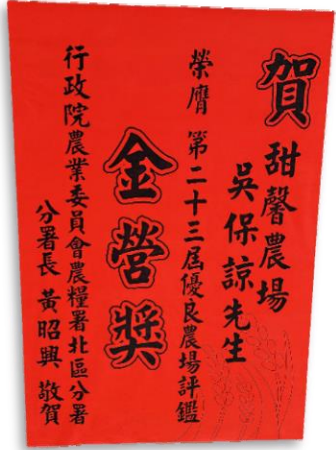 賀
甜馨農場
吳保諒先生
榮膺 第二十三屆優良農場評鑑
金營獎
行政院農業委員會農糧署北區分署
分署長 黃昭興 敬賀